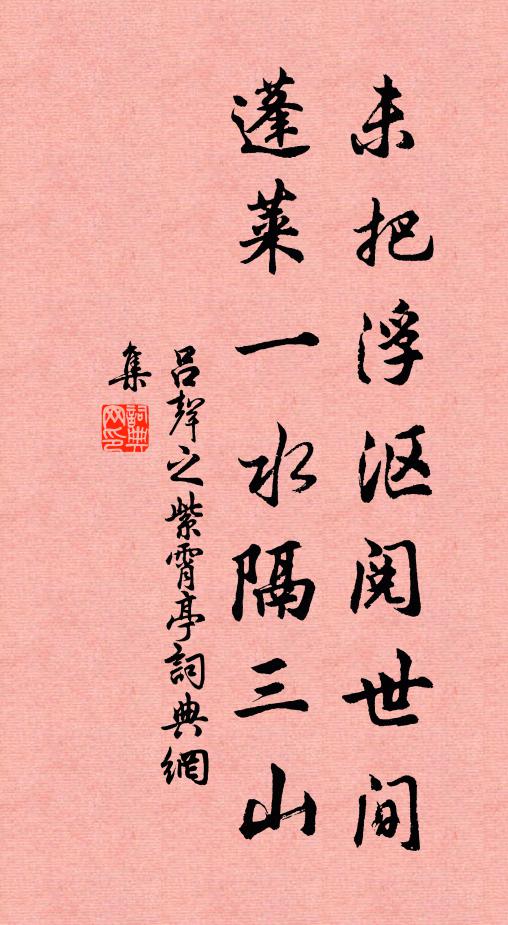 未把浮沤阅世间
蓬莱一水隔三山
吕声之紫霄亭词典網
集
詞典
网印